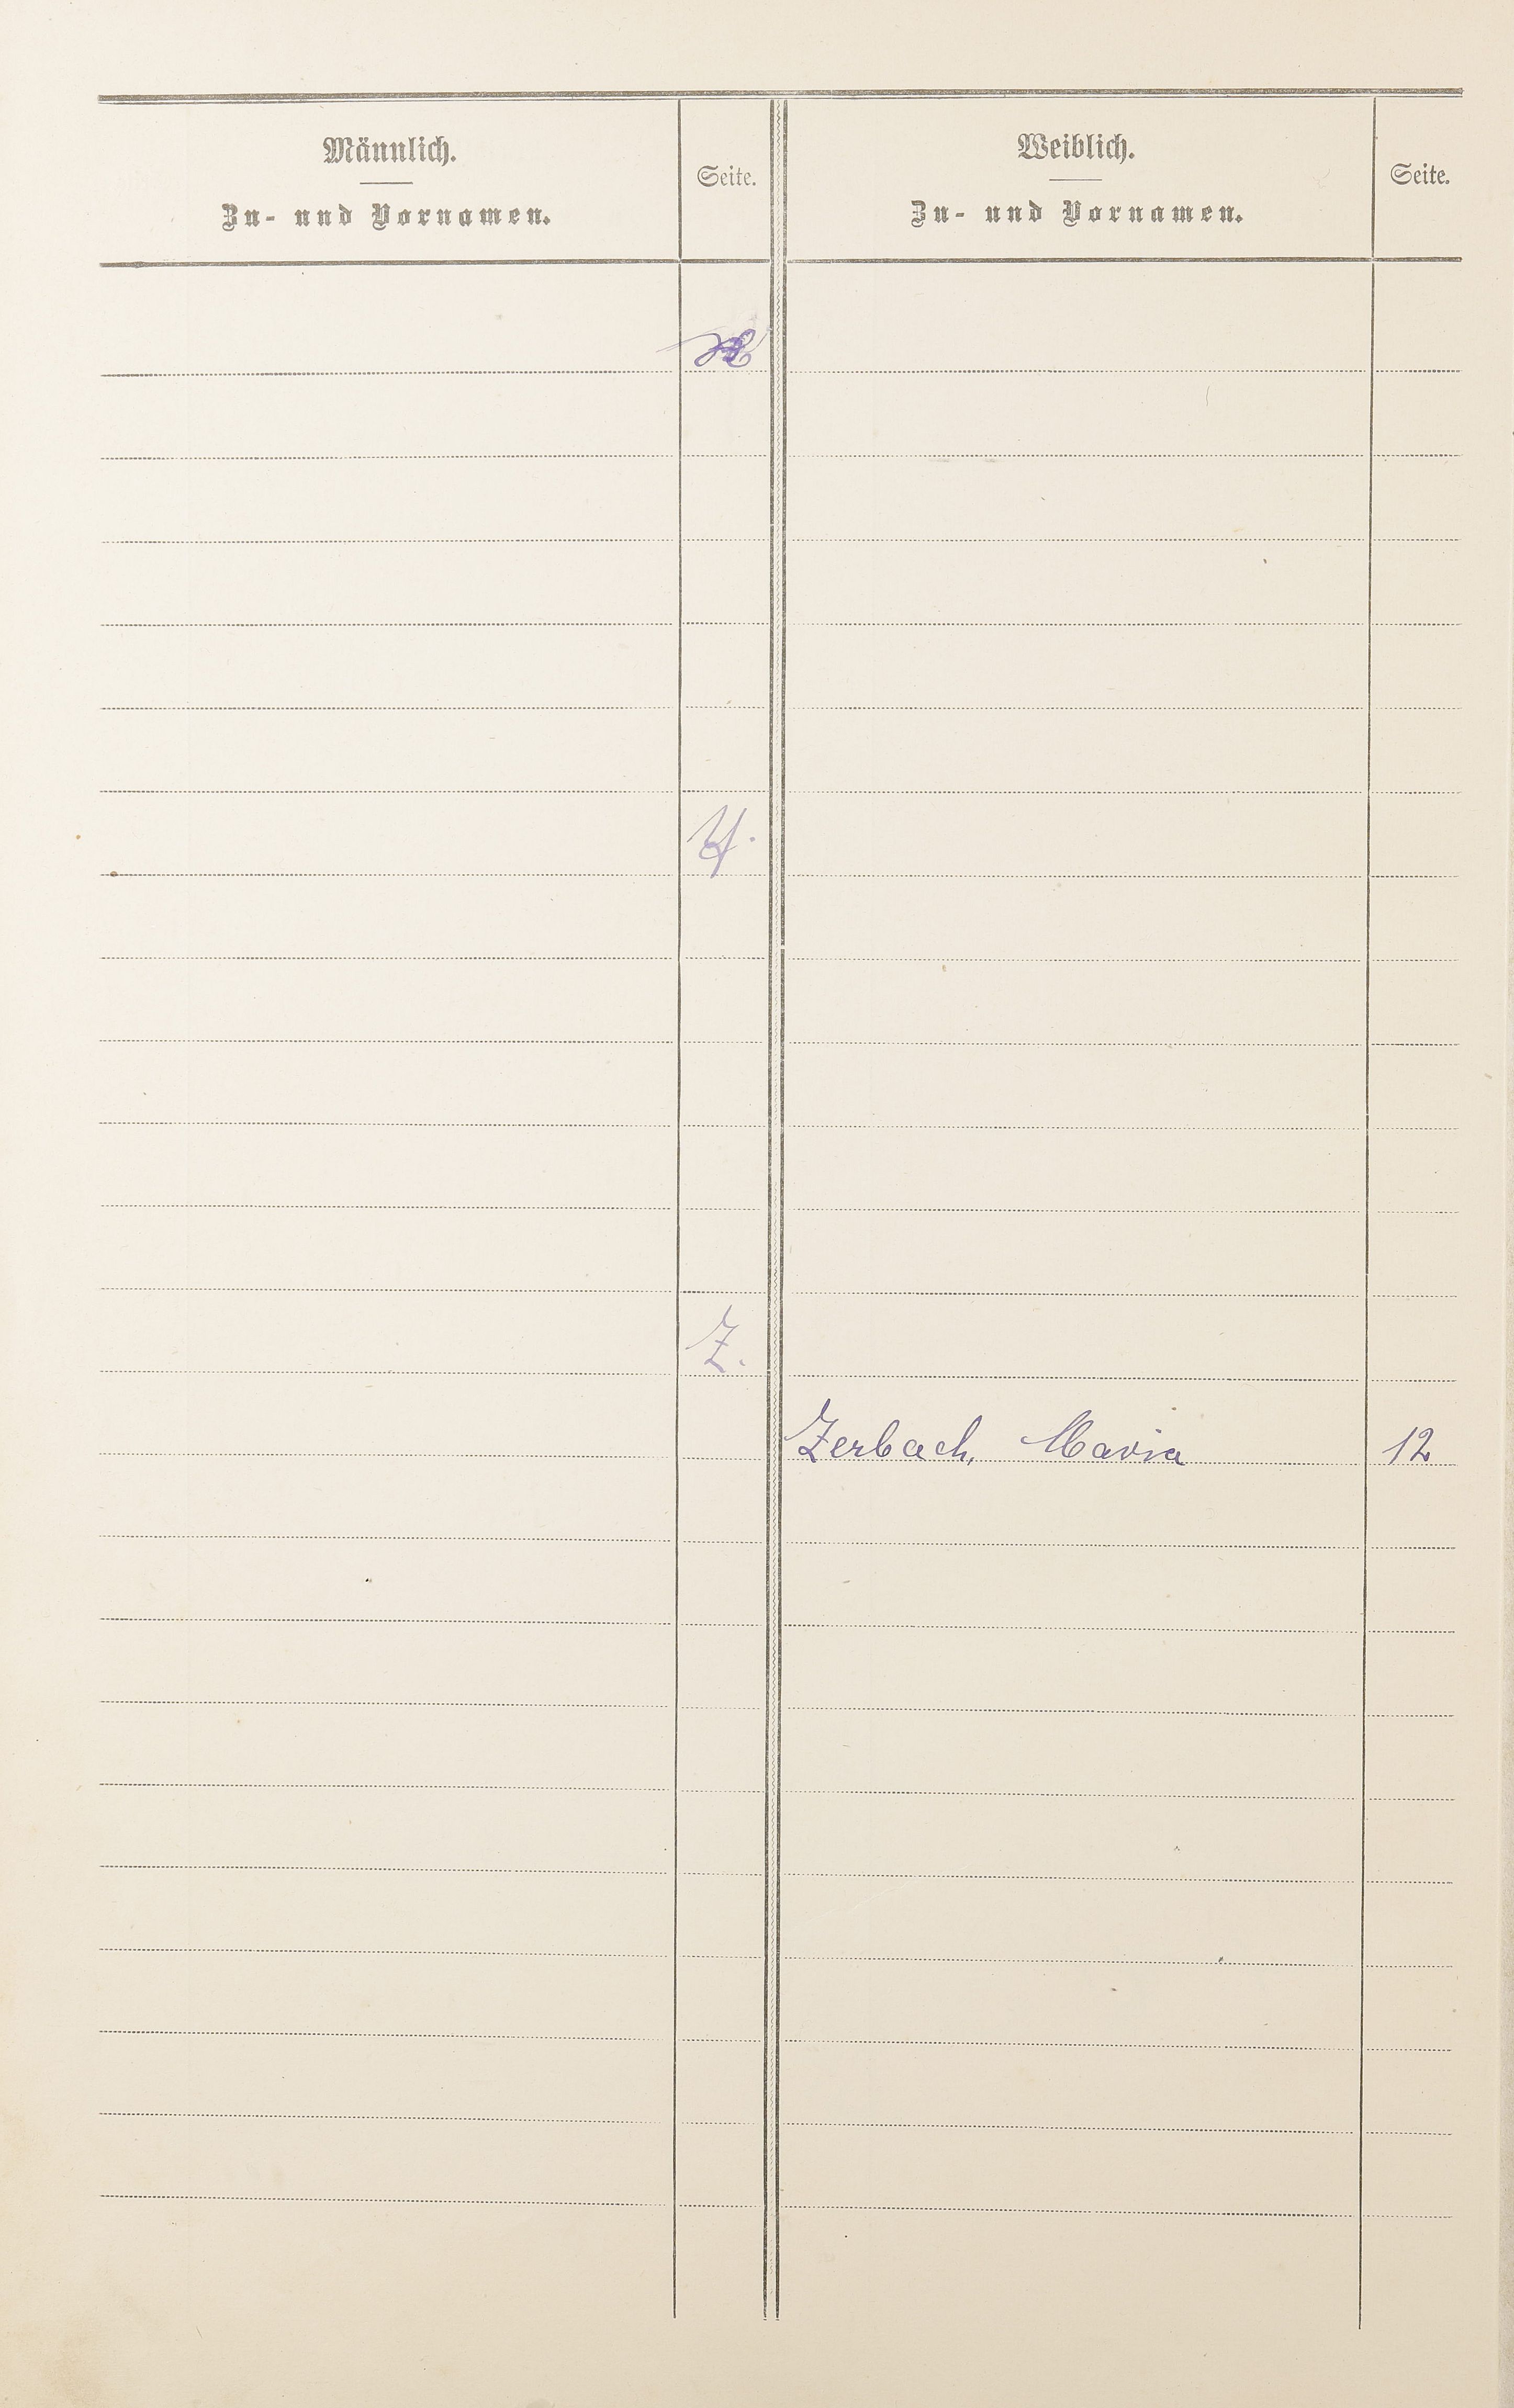 Männlich.
Zu- und Vornamen.
Seite.
Weiblich.
Zu- und Vornamen.
Seite.
X
Y.
Z.
Zerbach, Maria 12